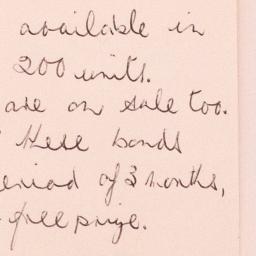 available in
200 units.
are on sale too.
these bonds
eriod of 3 months,
free prize.